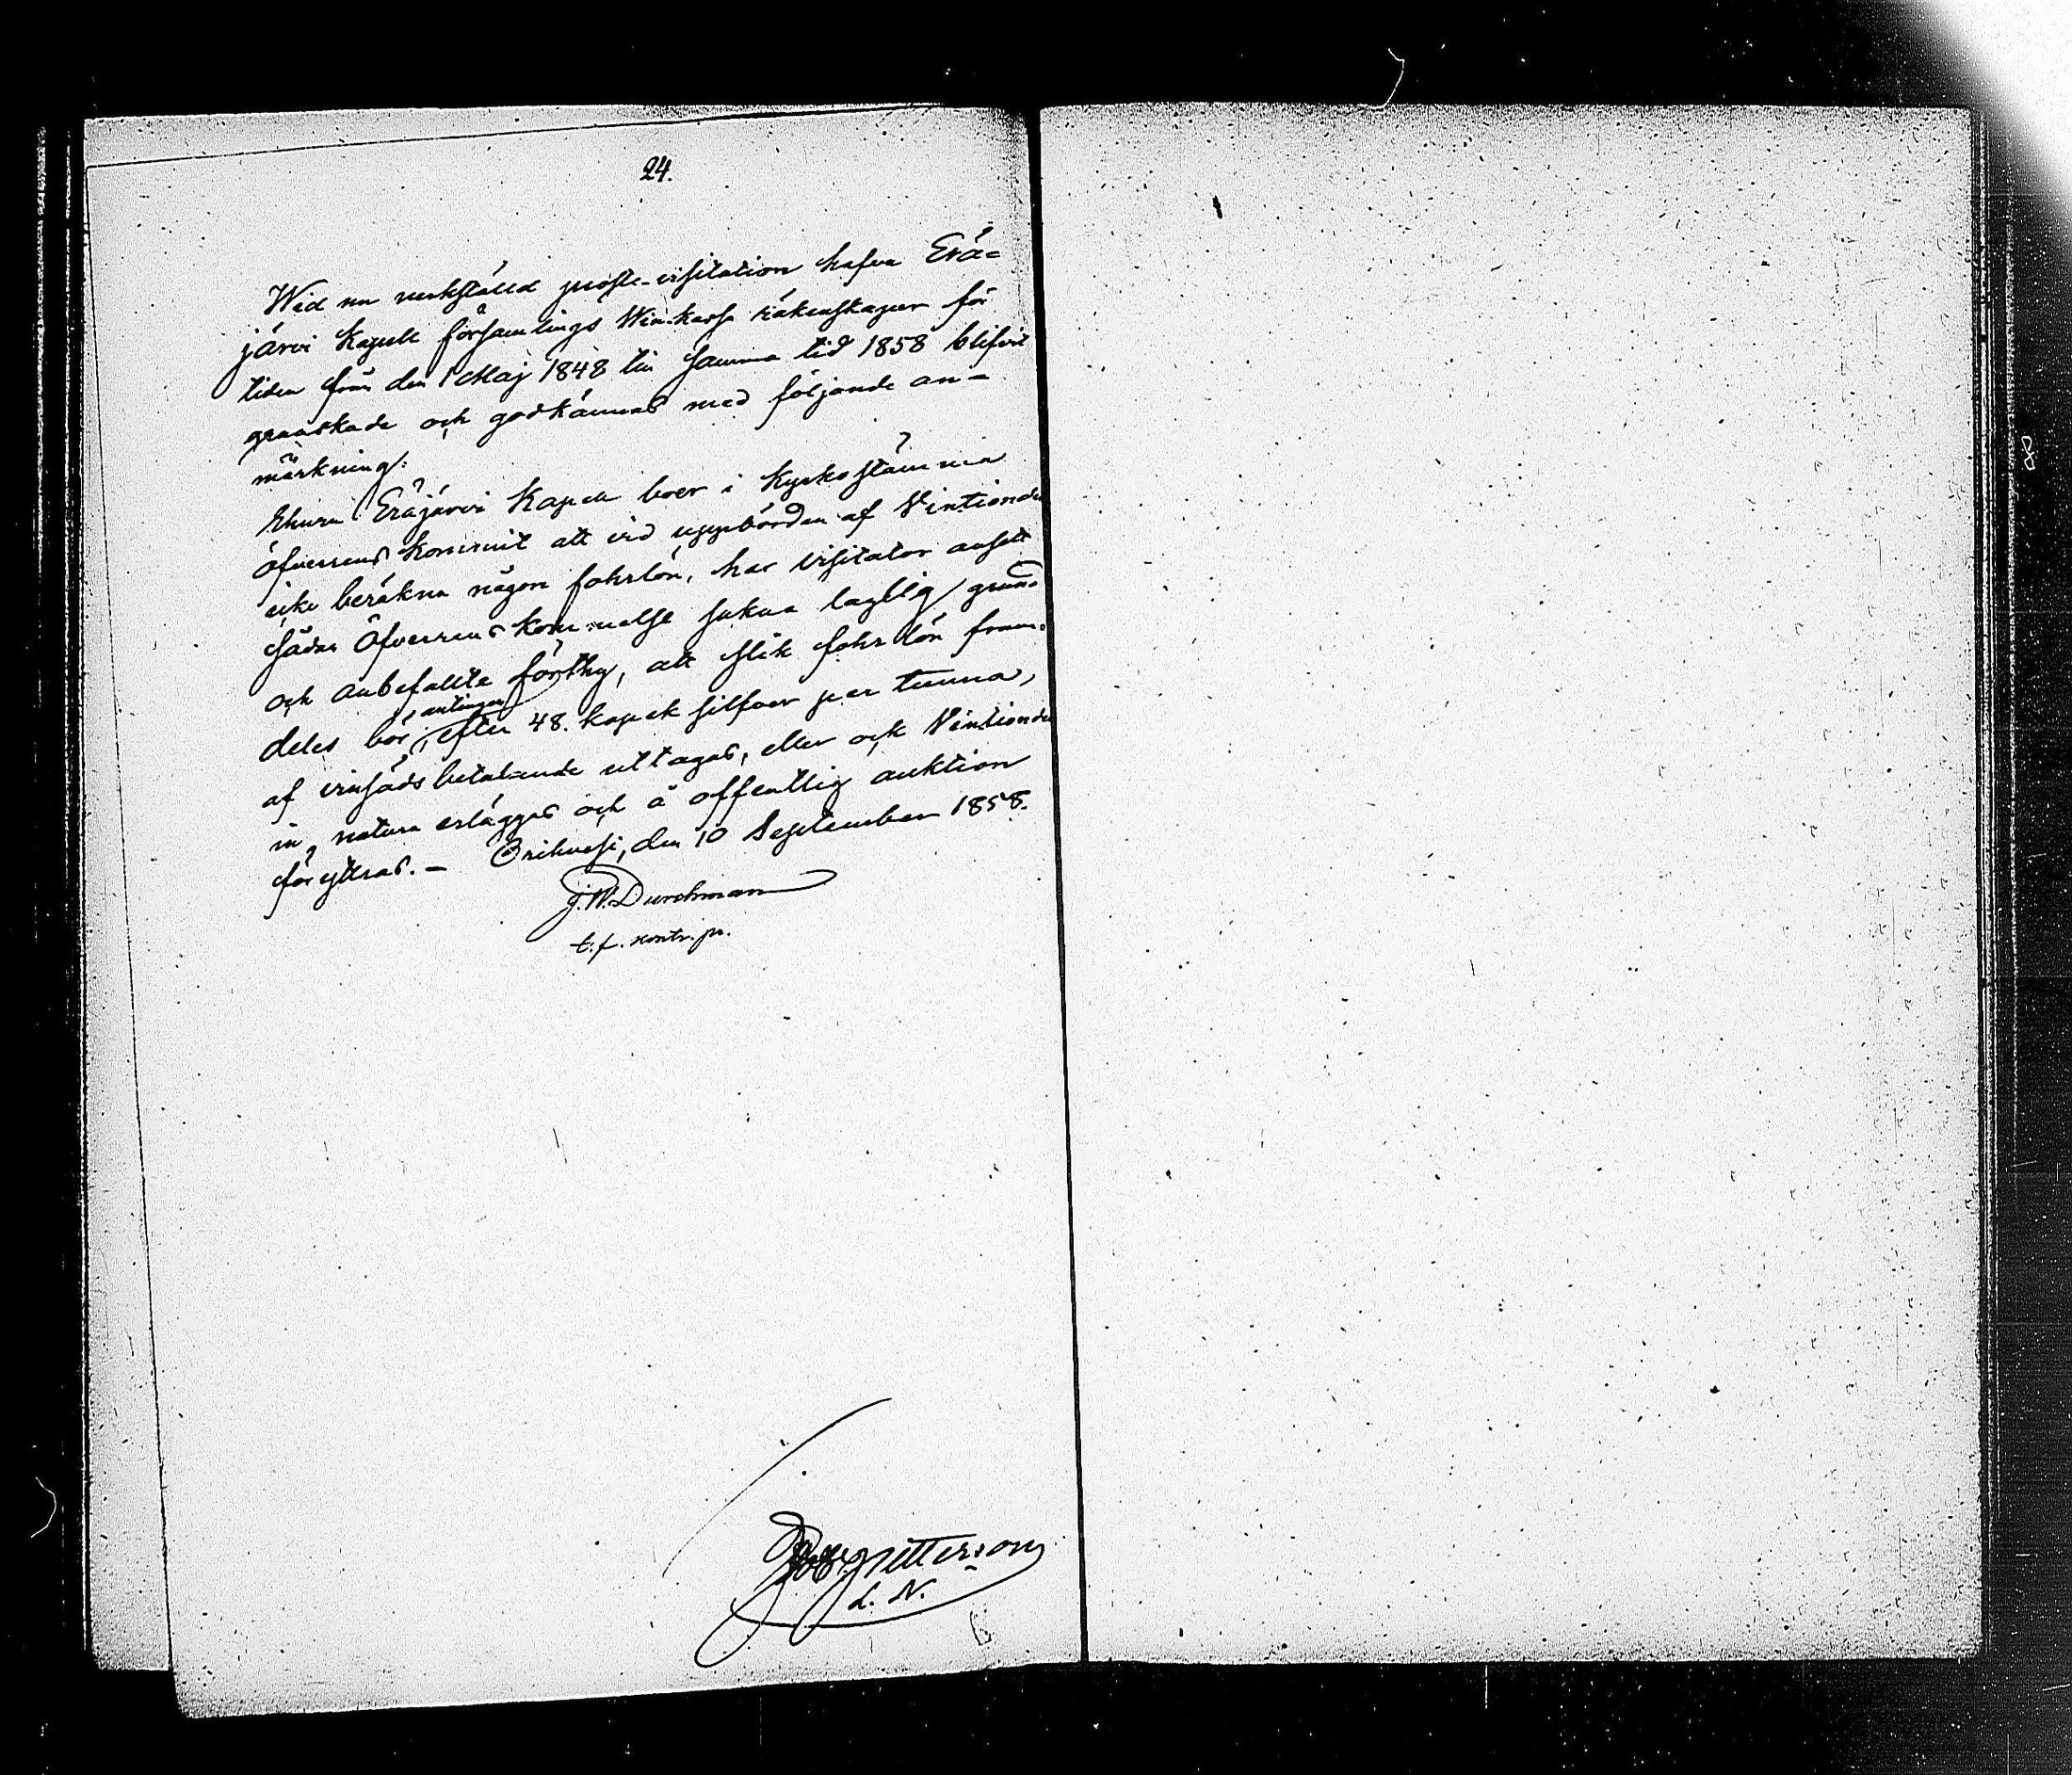 24.
Wid nu verkställd proste-visitation hafva Erä=
järvi Kapell församlings Winkassa räkenskaper för
tiden från den 1 Maj 1848 till samma tid 1858 blifvit
granskade och godkännas med följande an-
märkning:
Ehuru Eräjärvi Kapell boer i Kyrkostämma
öfverrens kommit att vid uppbörden af Vintionde
icke beräkna någon fohrlön, har Visitator ansett
sådan öfverrenskommelse sakna laglig grund
och anbefallte förthy, att slik fohrlön fram-
deles bör antingen efter 48. kopek silfver per tunna,
af vinsäds betalande uttagas, eller och Vintionde
in natura erläggas och å offentlig auktion
föryttras. - Orihvesi, den 10 September 1858.
J.W. Durchman
t.f. kontr. pr.
Pettersson
L. N.